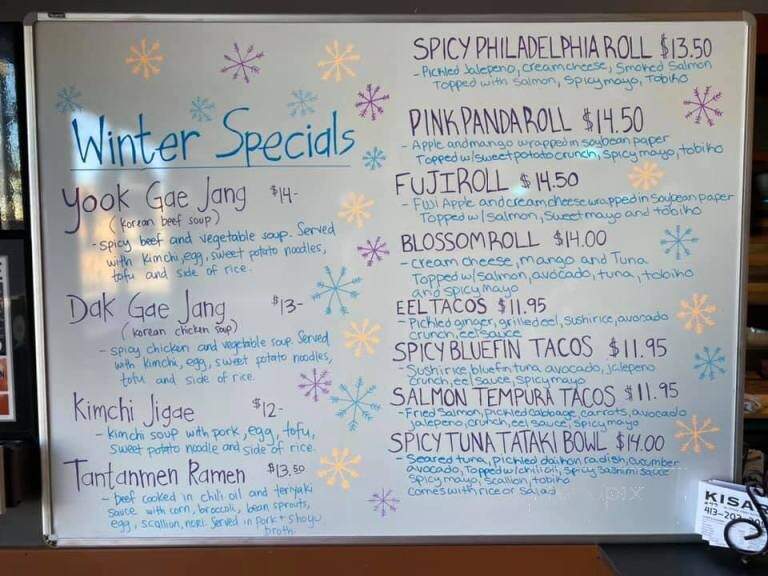 Winter Specials
Yook Gae Jang $14-
(Korean beef soup)
- spicy beef and vegetable soup. Served
with kimchi, egg, sweet potato noodles,
tofu and side of rice.
Dak Gae Jang $13-
(Korean chicken soup)
- spicy chicken and vegetable soup. Served
with kimchi, egg, sweet potato noodles,
tofu and side of rice.
Kimchi Jigae $12-
- kimchi soup with pork, egg, tofu,
sweet potato noodle and side of rice.
Tantanmen Ramen $13.50
- beef cooked in chili oil and teriyaki
sauce with corn, broccoli, bean sprouts,
egg, scallion, nori. Served in pork + shoyu
broth.
SPICY PHILADELPHIA ROLL $13.50
- Pickled Jalepeno, cream cheese, Smoked Salmon
Topped with Salmon, Spicy mayo, Tobiko
PINK PANDA ROLL $14.50
- Apple and mango wrapped in soybean paper
Topped w/ sweet potato crunch, spicy mayo, tobiko
FUJI ROLL $14.50
- Fuji Apple and cream cheese wrapped in soybean paper
Topped w/ salmon, sweet mayo and tobiko
BLOSSOM ROLL $14.00
- cream cheese, mango and Tuna
Topped w/ salmon, avocado, tuna, tobiko
and spicy mayo
EEL TACOS $11.95
- Pickled ginger, grilled eel, sushi rice, avocado
crunch, eel sauce
SPICY BLUEFIN TACOS $11.95
- Sushi rice, bluefin tuna, avocado, jalepeno
crunch, eel sauce, spicy mayo
SALMON TEMPURA TACOS $11.95
- Fried Salmon, pickled cabbage, carrots, avocado
jalepeno, crunch, eel sauce, spicy mayo
SPICY TUNA TATAKI BOWL $14.00
- Seared tuna, pickled daikon radish, cucumber
avocado, Topped w/ chili oil, Spicy Sashimi sauce
spicy mayo, scallion, tobiko
comes with rice or salad
KISAR